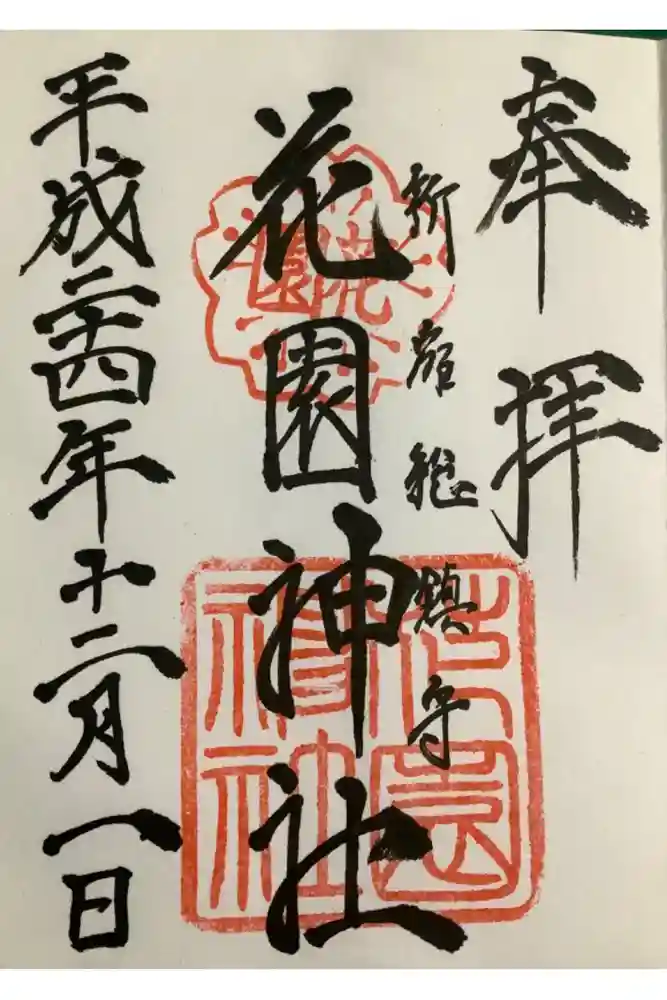 奉拝
新宿総鎮守
花園神社
花園
花園神社
平成二十四年十二月一日